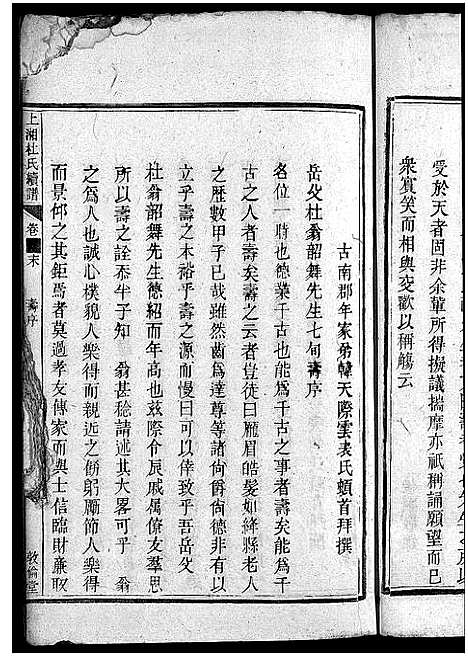 受於天者固非余輩所得擬議揣摩亦祇稱誦願望而已
衆賓笑而相與交歡以稱觴云
古南郡年家弟韓天際雲表氏頓首拜撰
岳父杜翁韶舞先生七旬壽序
名位一時也德業千古也能爲千古之事者壽矣能爲千
古之人者壽矣壽之云者豈徒曰龐眉皓髮如絳縣老人
之歷數甲子已哉雖然天下有達尊等諸尙爵尙德非有
立乎壽之木裕乎壽之源而慢乎慢乎其際可致乎吾岳父
杜翁韶舞先生德紹而年高也兹際令辰戚屬僚友羣思
所以壽之詮忝半子知　翁甚稔請述其大畧可乎　翁
之爲人也誠心樸貌人樂得而親近之飭躬勵節人樂得
而景仰之其鉅焉者莫過孝友傳家而與士信臨財廉取
上湘杜氏續譜
卷末
壽序
敦倫堂